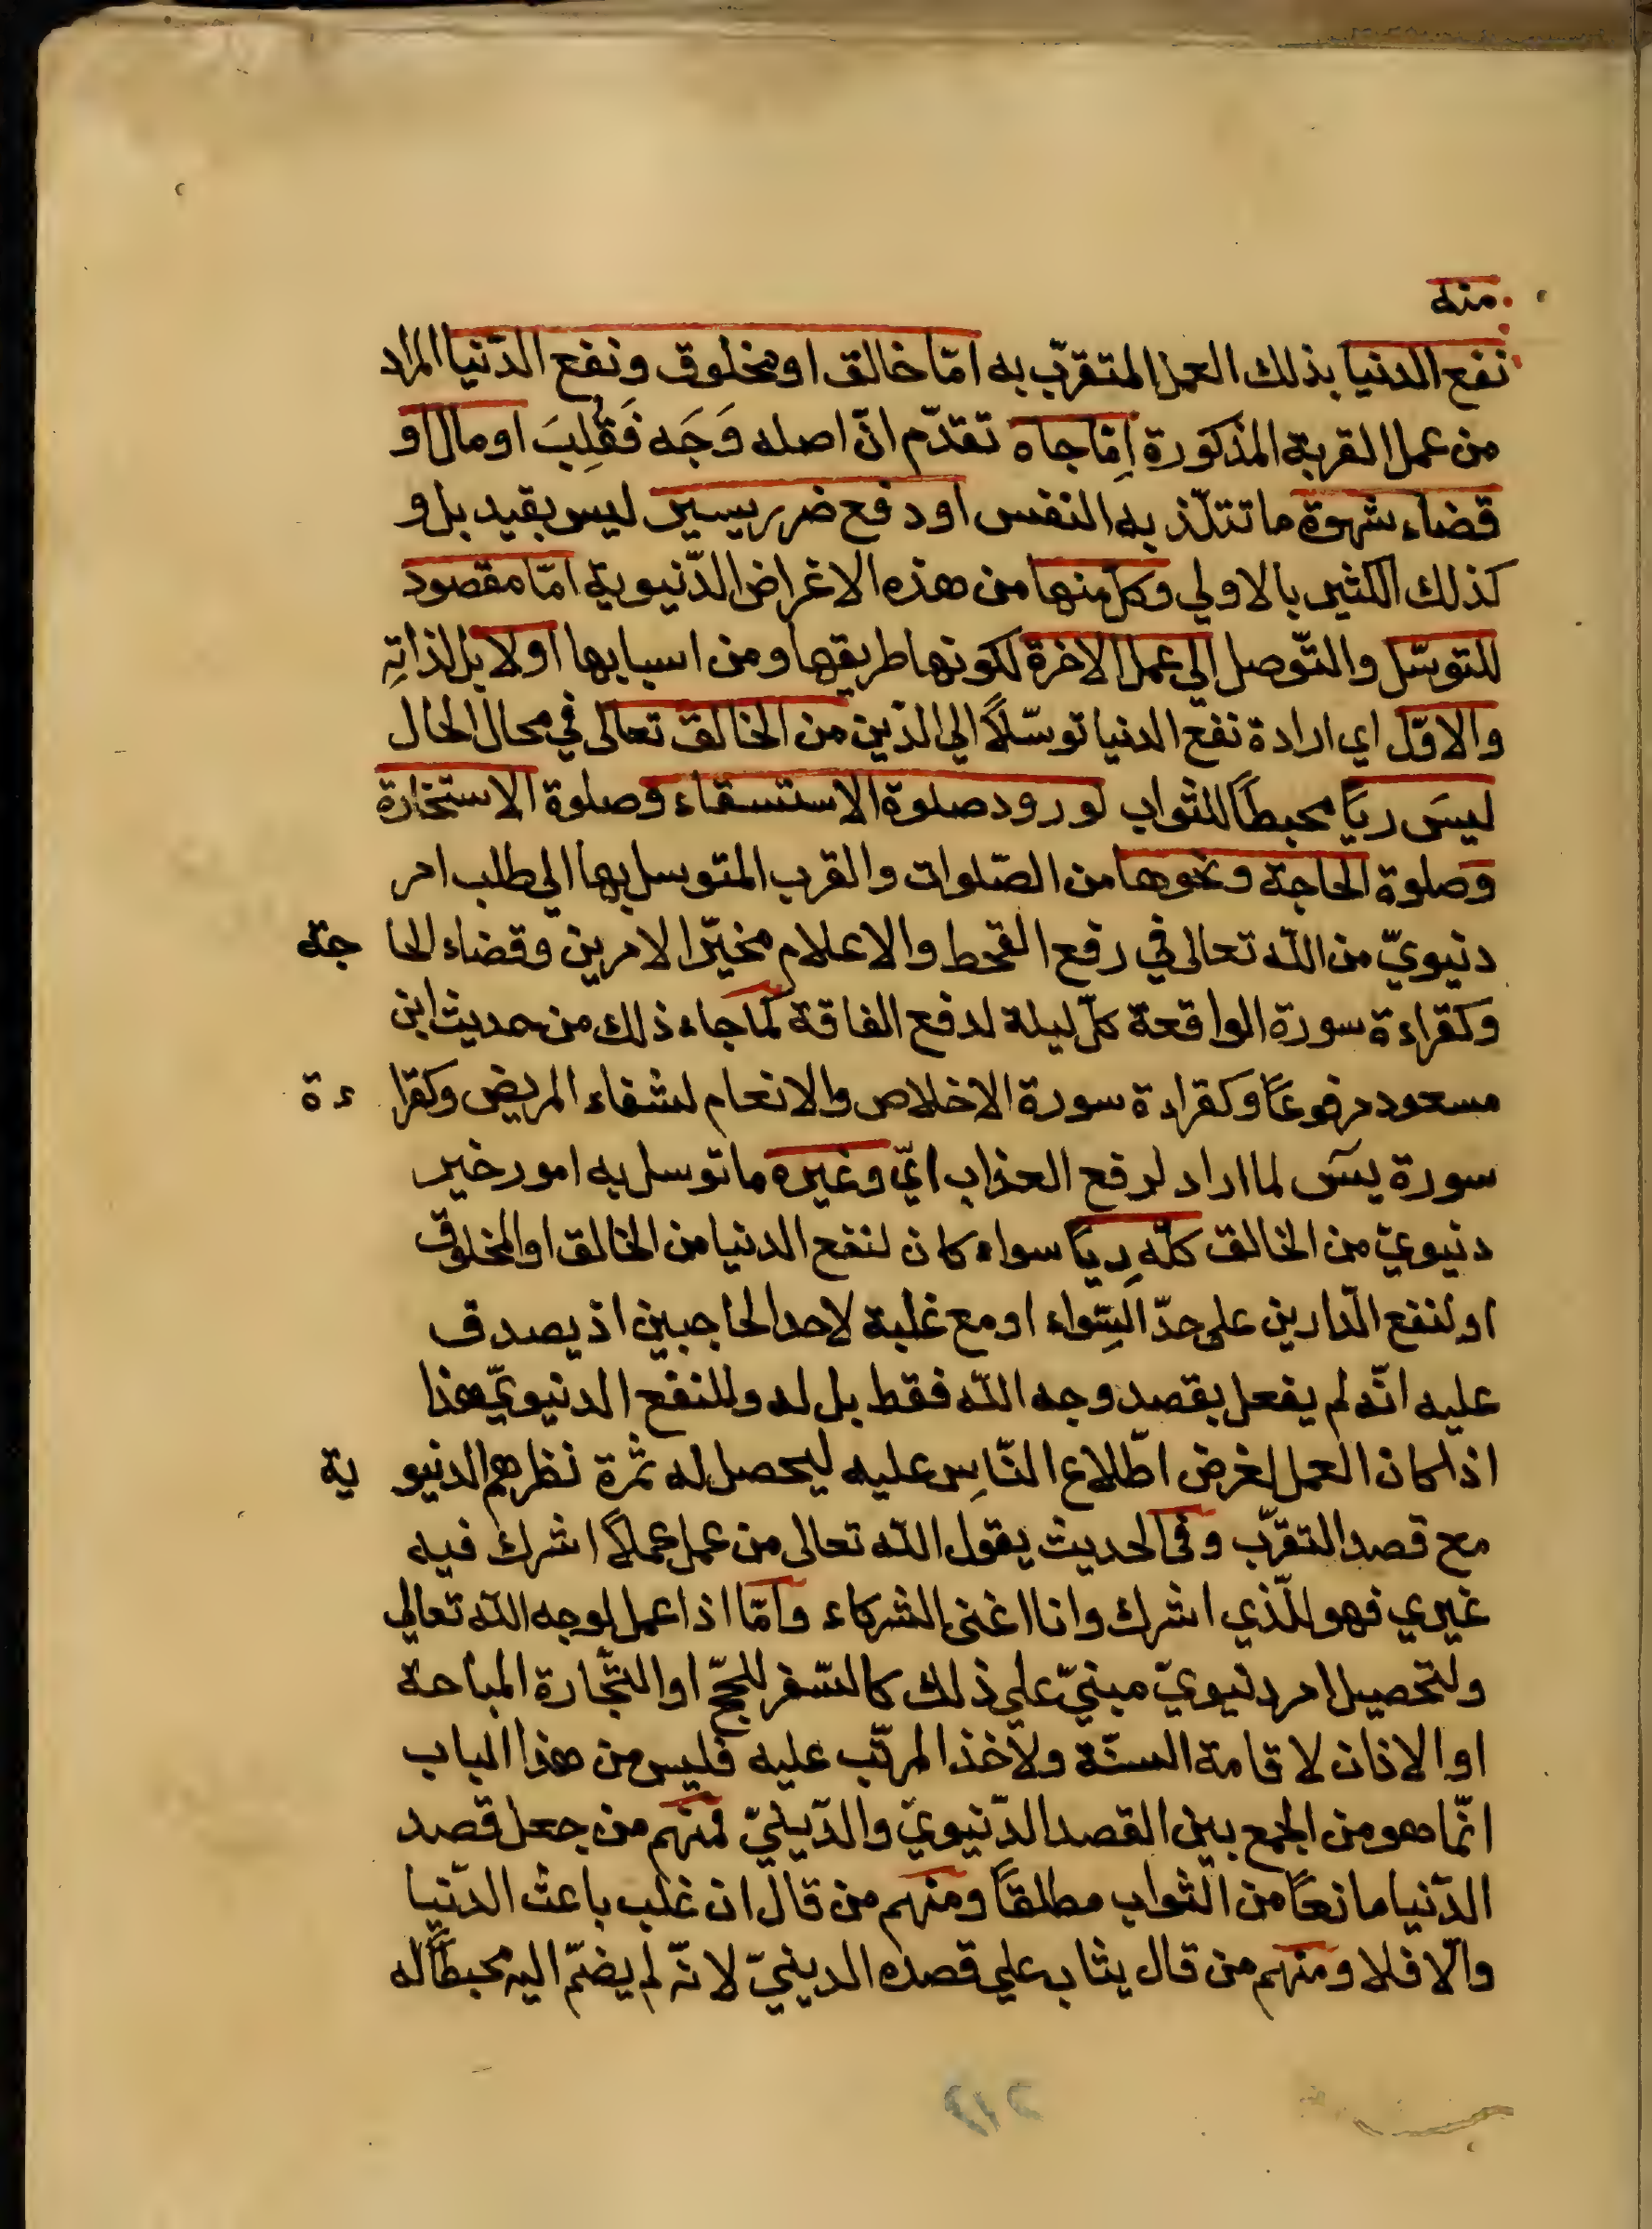 منه
نفع الدنيا بذلك العمل المتقرّب به امّا خالق او مخلوق ونفع الدّنيا المراد
من عمل القربة المذكورة امّا جاه تقدّم انّ اصله وَجَه فَقُلِبَ او مال او
قضاء شهوة ما تتلذّذ به النفس او دفع ضرر يسير ليس بقيد بل و
كذلك الكثير بالاولي وكل منها من هذه الاغراض الدّنيوية امّا مقصود
للتوسّل والتّوصل الي عمل الاخرة لكونها طريقها ومن اسبابها او لا بل لذاتِهِ
والاوّل اي ارادة نفع الدنيا توسّلاً الي الدّين من الخالق تعالى في محال الحال
ليسَ ريًا محبطاً للثواب لورود صلوة الاستسقاء وصلوة الاستخارة
وصلوة الحاجة ونحوها من الصّلوات والقرب المتوسل بها الي طلب امر
دنيويّ من اللّه تعالى في رفع القحط والاعلام مخيّر الامرين وقضاء الحا جة
وكقراءة سورة الواقعة كلّ ليلة لدفع الفاقة كما جاء ذلك من حديث ابن
مسعود مرفوعًا وكقراءة سورة الاخلاص والانعام لشفاء المريض وكقرا ءة
سورة يسٓ لما اراد لرفع العذاب ايّ وغيره ما توسل به امور خير
دنيويّ من الخالق كلّه رِيًا سواء كان لنفع الدنيا من الخالق او المخلوق
او لنفع الّدارين على حدّ السّواء او مع غلبة لاحد الحاجبين اذ يصدق
عليه انّه لم يفعل بقصد وجه اللّه فقط بل له وللنفع الدنيويّ هذا
اذا كان العمل لغرض اطّلاع النّاسِ عليه ليحصل له ثمرة نظرهم الدنيو ية
مع قصد التقرّب وفى الحديث يقول اللّه تعالى من عمل عملاً اشرك فيه
غيري فهو للّذي اشرك وانا اغنى الشركاء وامّا اذا عمل لوجه اللّه تعالي
ولتحصيل امر دنيويّ مبنيّ علي ذلك كالسّفر للحجّ او التّجارة المباحة
او الاذان لاقامة السنّة ولاخذ المرتّب عليه فليس من هذا الباب
انّما هو من الجمع بين القصد الدّنيويّ والدّينيّ فمنهم من جعل قصد
الدّنيا مانعًا من الثواب مطلقًا ومنهم من قال ان غلب باعث الدّنيا
والّا فلا ومنهم من قال يثاب علي قصده الدينيّ لانّه لم يضمّ اليه محبطًا له